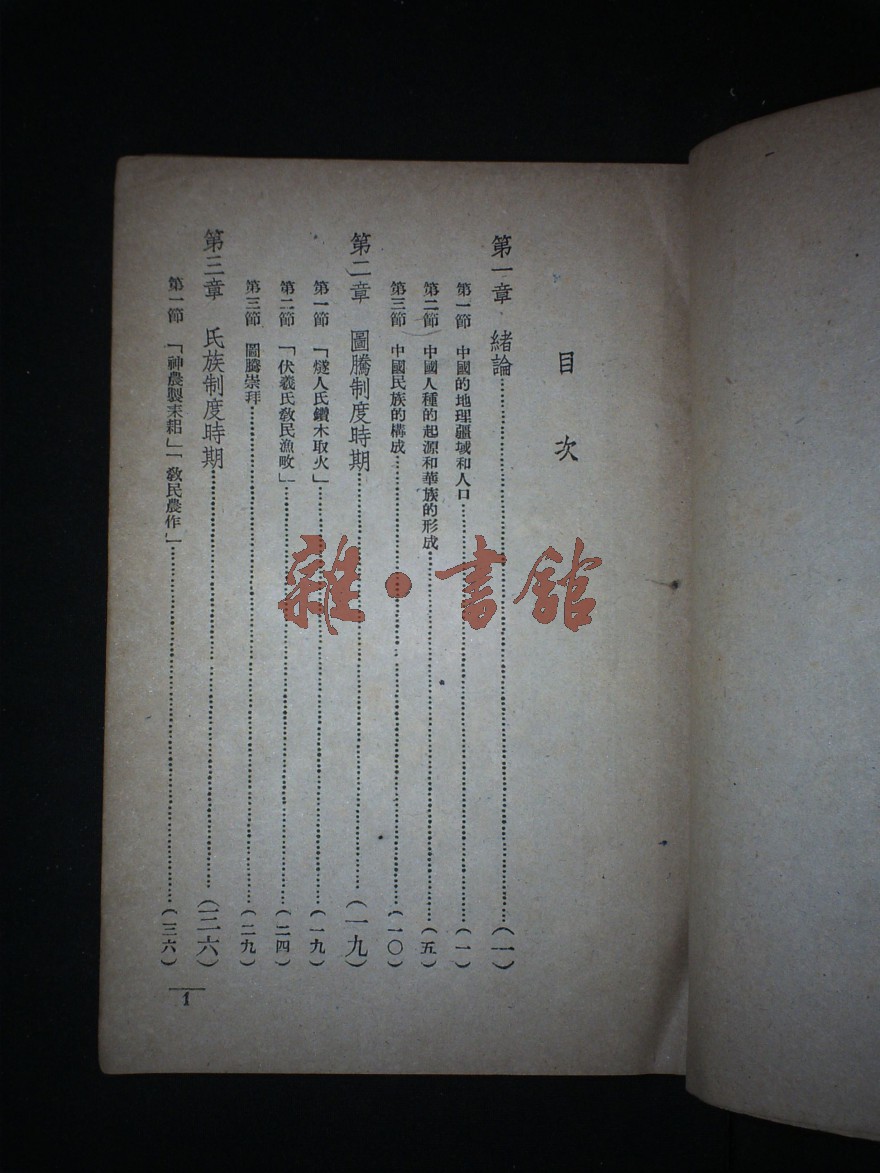 目次
第一章 緒論……(一)
第一節 中國的地理疆域和人口……(一)
第二節 中國人種的起源和華族的形成……(五)
第三節 中國民族的構成……(一〇)
第二章 圖騰制度時期……(一九)
第一節 「燧人氏鑽木取火」……(一九)
第二節 「伏羲氏敎民漁畋」……(二四)
第三節 圖騰崇拜……(二九)
第三章 氏族制度時期……(三六)
第一節 「神農製耒耜」「敎民農作」……(三六)
1
雜·書館